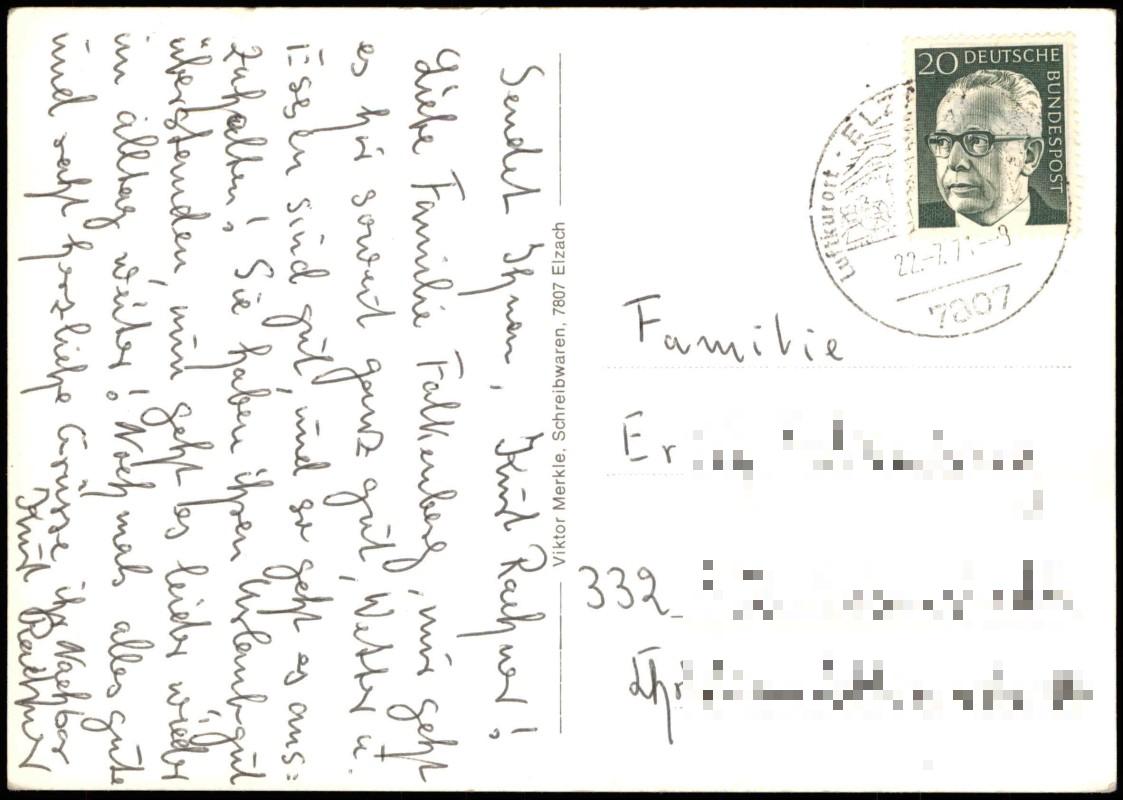 Sendet Ihnen, Kurt Rachner!
Liebe Familie Falkenberg, mir geht
es hir soweit ganz gut, Wetter u.
Essen sind gut, und so geht es aus=
zuhalten! Sie haben ihren Urlaub gut
überstanden, nun geht es leider wieder
im alltag weiter! Noch mals alles gute
und recht herzliche Grüsse ihr Nachbar
Kurt Rachner
Viktor Merkle, Schreibwaren, 7807 Elzach
20 DEUTSCHE
BUNDESPOST
Luftkurort · ELZ
22.-7.71.-9
7807
Familie
Er
332